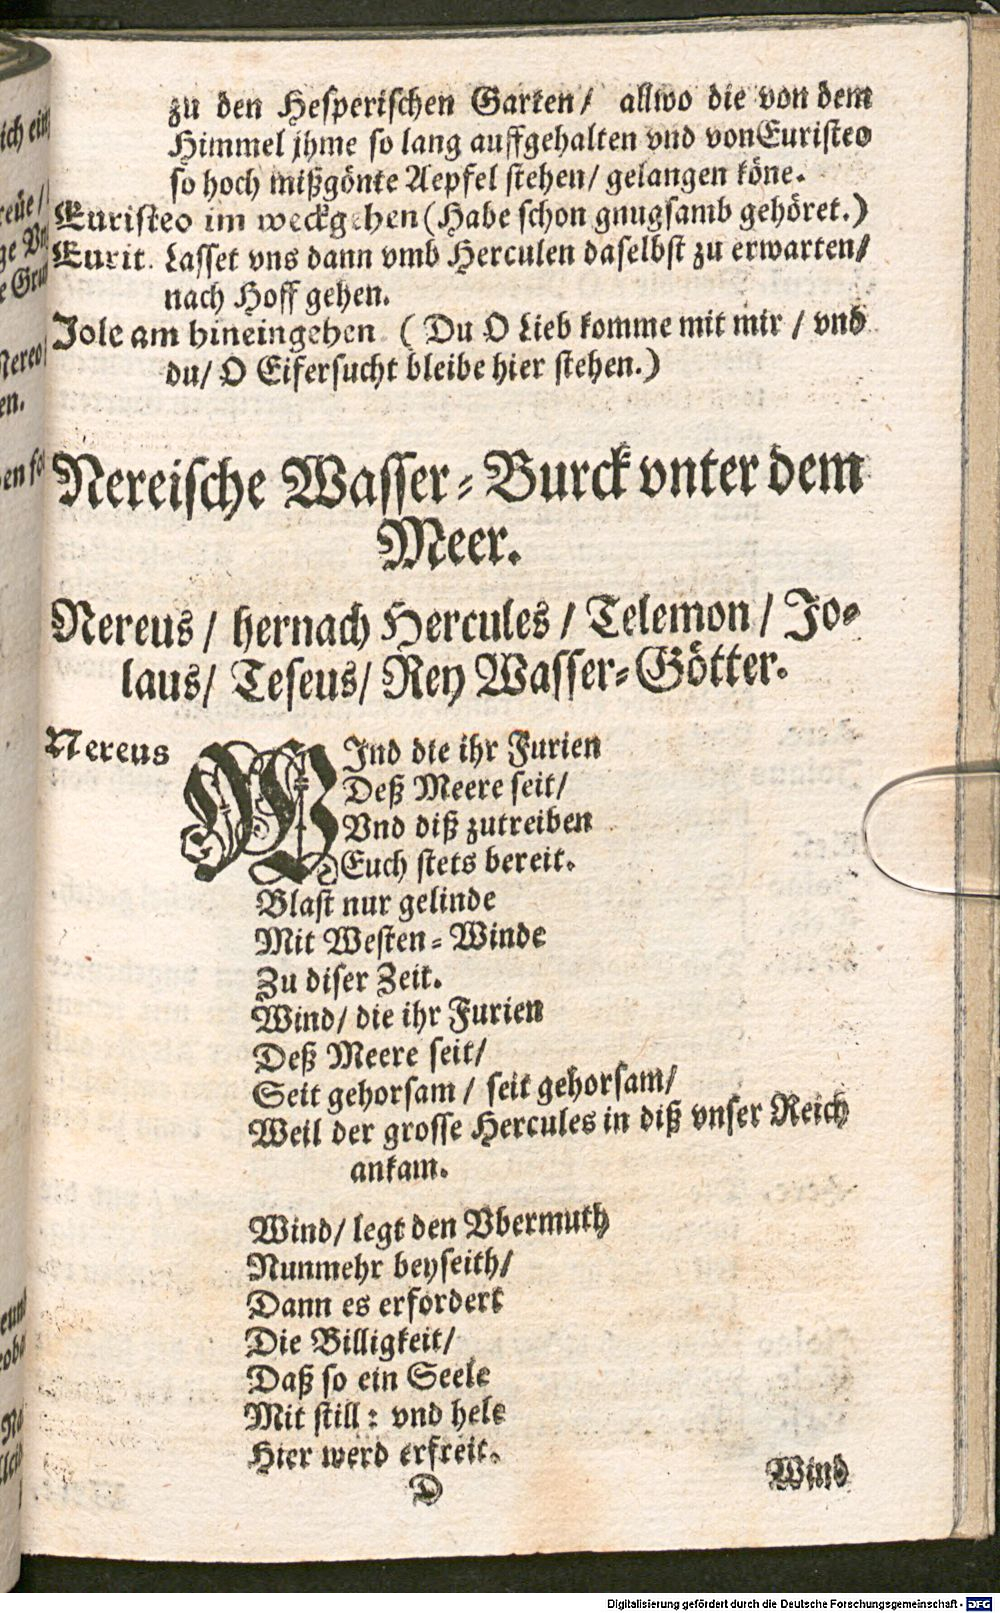 zu den Hesperischen Garten/ allwo die von dem
Himmel jhme so lang auffgehalten vnd von Euristeo
so hoch mißgönte Aepfel stehen/ gelangen köne.
Euristeo im weckgehen (Habe schon gnugsamb gehöret.)
Eurit. Lasset vns dann vmb Herculen daselbst zu erwarten/
nach Hoff gehen.
Jole am hineingehen (Du O Lieb komme mit mir / vnd
du/ O Eifersucht bleibe hier stehen.)
Nereische Wasser-Burck vnter dem
Meer.
Nereus / hernach Hercules / Telemon / Jo-
laus/ Teseus/ Rey Wasser-Götter.
Nereus WInd die ihr Furien
Deß Meere seit/
Vnd diß zutreiben
Euch stets bereit.
Blast nur gelinde
Mit Westen-Winde
Zu diser Zeit.
Wind/ die ihr Furien
Deß Meere seit/
Seit gehorsam / seit gehorsam/
Weil der grosse Hercules in diß vnser Reich
ankam.
Wind/ legt den Vbermuth
Nunmehr beyseith/
Dann es erfordert
Die Billigkeit/
Daß so ein Seele
Mit still: vnd hele
Hier werd erfreit.
D Wind
Digitalisierung gefördert durch die Deutsche Forschungsgemeinschaft - DFG